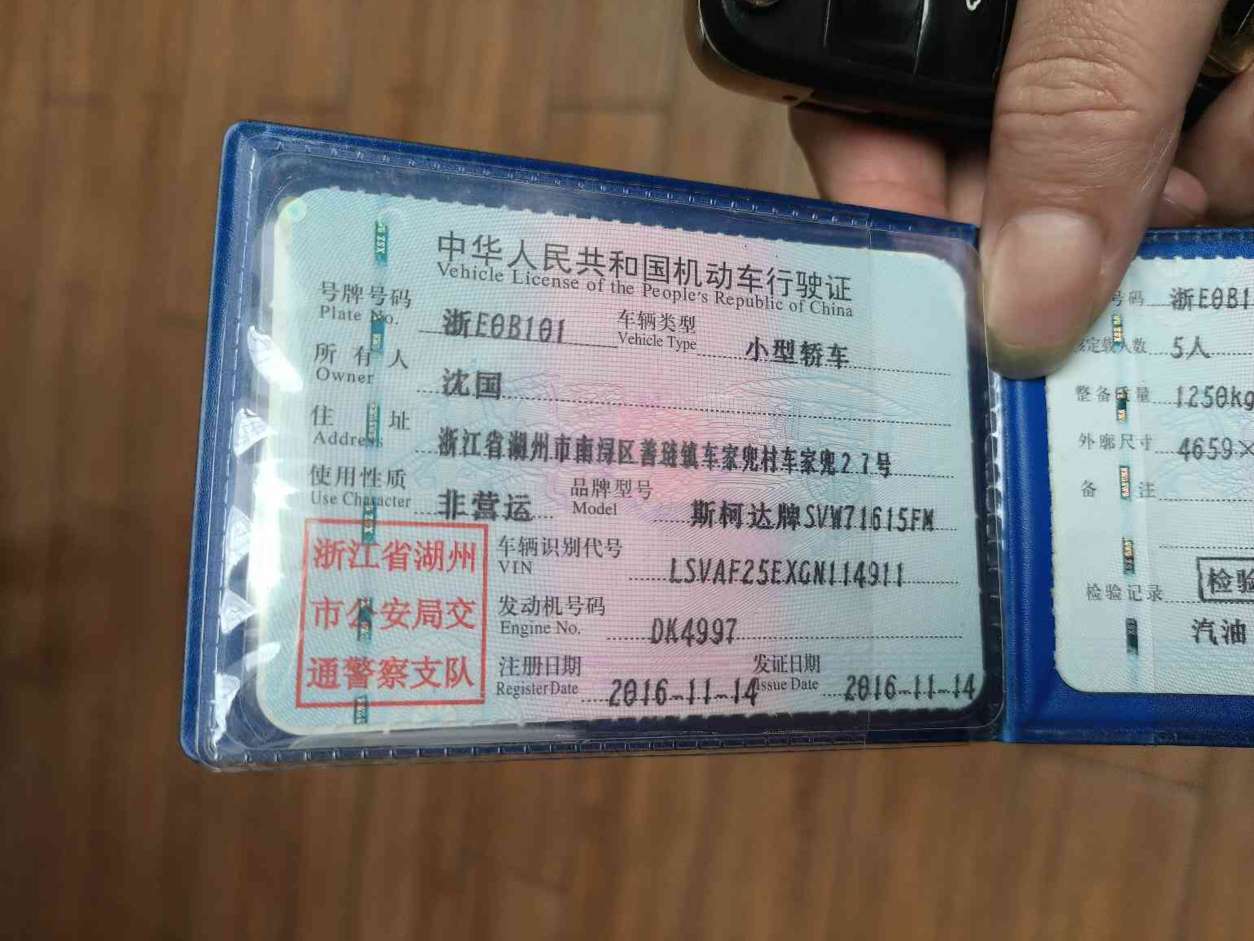 中华人民共和国机动车行驶证
Vehicle License of the People's Republic of China
号牌号码 浙E0B101 车辆类型 小型轿车
Plate No. Vehicle Type
所有人 沈国
Owner
住址 浙江省湖州市南浔区善琏镇车家兜村车家兜27号
Address
使用性质 非营运 品牌型号 斯柯达牌SVW71615FM
Use Character Model
浙江省湖州
市公安局交
通警察支队
车辆识别代号 LSVAF25EXGN114911
VIN
发动机号码 DK4997
Engine No.
注册日期 2016-11-14 发证日期 2016-11-14
Register Date Issue Date
号码 浙E0B1
定载人数 5人
整备质量 1250kg
外廓尺寸 4659×
备注
检验记录
检验
汽油